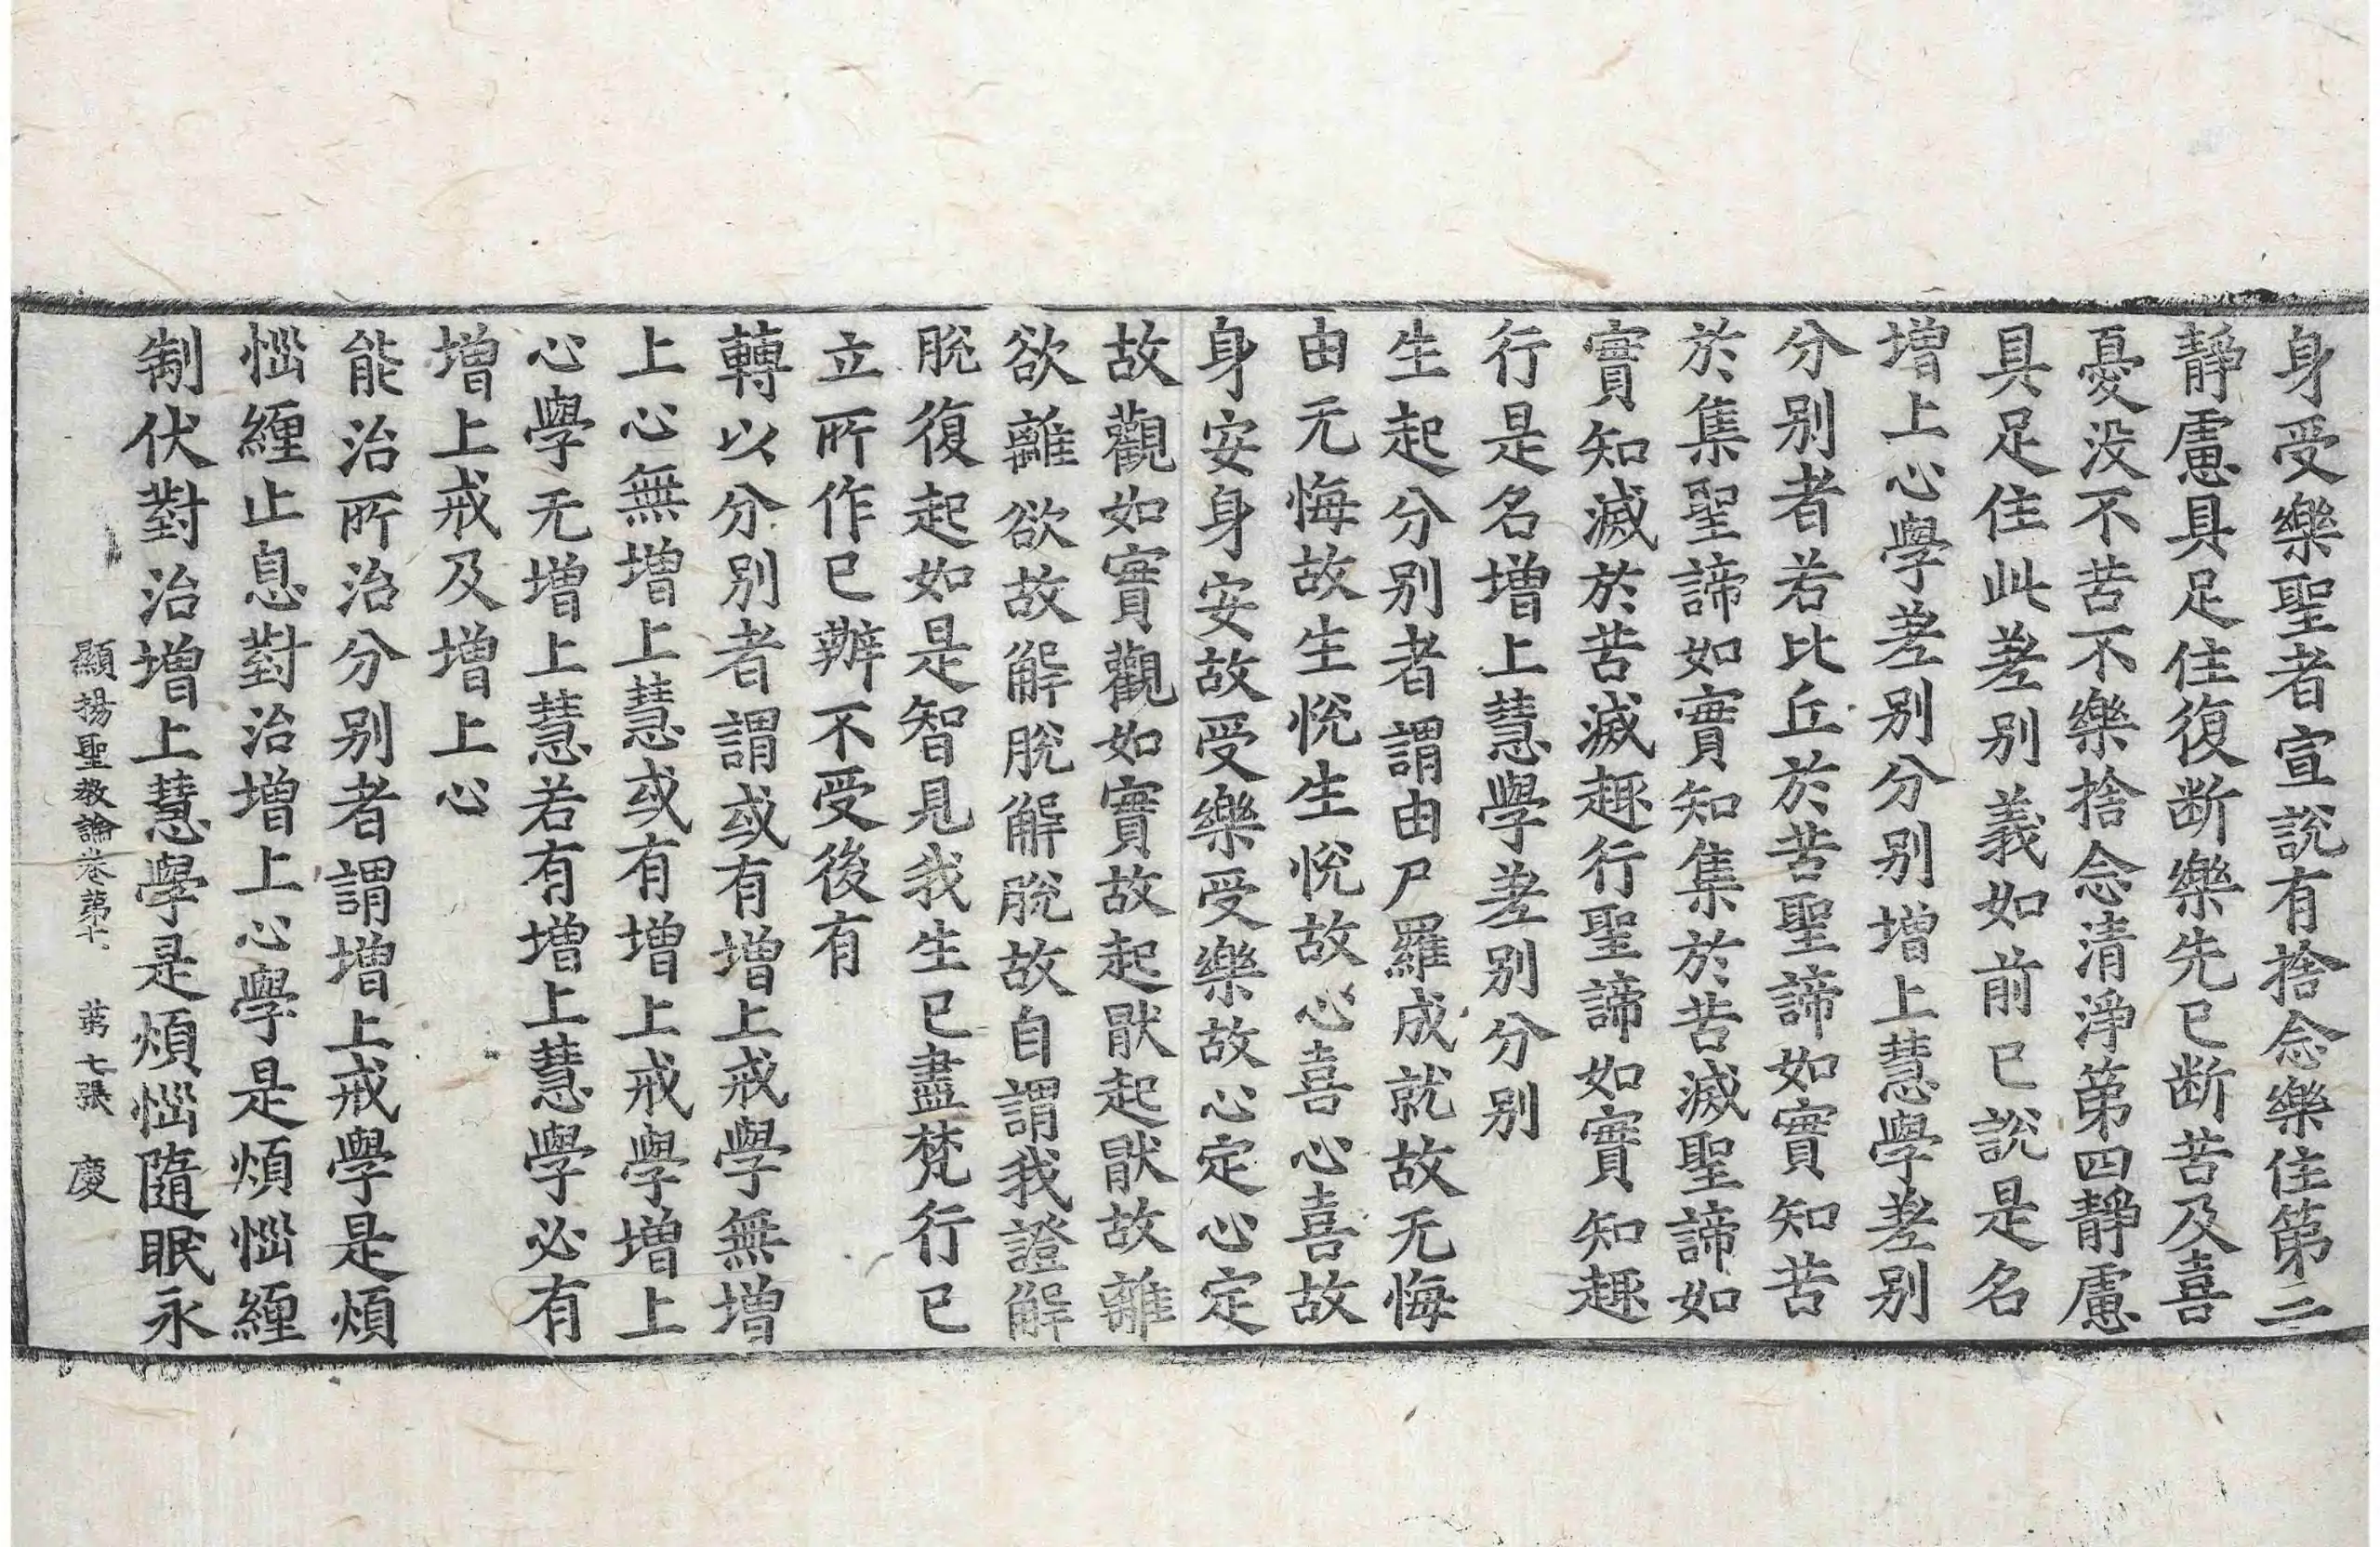 身受樂聖者宣說有捨念樂住第二
靜慮具足住復断樂先已断苦及喜
憂没不苦不樂捨念清淨第四靜慮
具足住此差別義如前已說是名
增上心學差別分別增上慧學差別
分別者若比丘於苦聖諦如實知苦
於集聖諦如實知集於苦滅聖諦如
實知滅於苦滅趣行聖諦如實知趣
行是名增上慧學差別分別
生起分別者謂由尸羅成就故无悔
由无悔故生悅生悅故心喜心喜故
身安身安故受樂受樂故心定心定
故觀如實觀如實故起猒起猒故離
欲離欲故解脫解脫故自謂我證解
脫復起如是智見我生已盡梵行已
立所作已辦不受後有
轉以分別者謂或有增上戒學無增
上心無增上慧或有增上戒學增上
心學无增上慧若有增上慧學必有
增上戒及增上心
能治所治分別者謂增上戒學是煩
惱纏止息對治增上心學是煩惱纏
制伏對治增上慧學是煩惱隨眠永
顯揚聖教論卷第七 第七張 慶